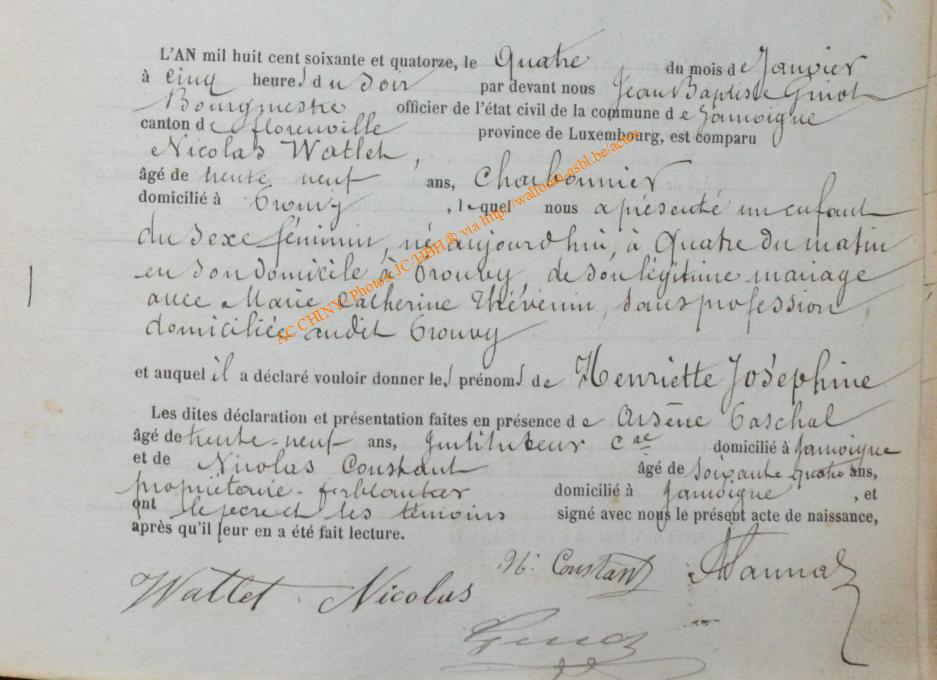 L'AN mil huit cent soixante et quatorze, le Quatre du mois de Janvier
à cinq heures du soir par devant nous Jean Baptiste
Bourgmestre officier de l'état civil de la commune de Jamoigne
canton de florenville province de Luxembourg, est comparu
Nicolas Watlet,
âgé de trente neuf ans, Charbonnier
domicilié à , lequel nous a présenté un enfant
du sexe féminin, né aujourd'hui, à Quatre du matin
en son domicile à de son légitime mariage
avec Marie Catherine Thévenin, sans profession,
domiciliée audit
et auquel il a déclaré vouloir donner les prénoms de Henriette Joséphine
Les dites déclaration et présentation faites en présence de Arsène
âgé de trente-neuf ans, Instituteur cal domicilié à Jamoigne
et de Nicolas Constant âgé de soixante quatre ans,
propriétaire-ferblantier domicilié à Jamoigne , et
ont le père et les témoins signé avec nous le présent acte de naissance,
après qu'il leur en a été fait lecture.
N. Constant
Watlet Nicolas
AC CHINY Photos JC/HBH® via http://wallonia-asbl.be/actes